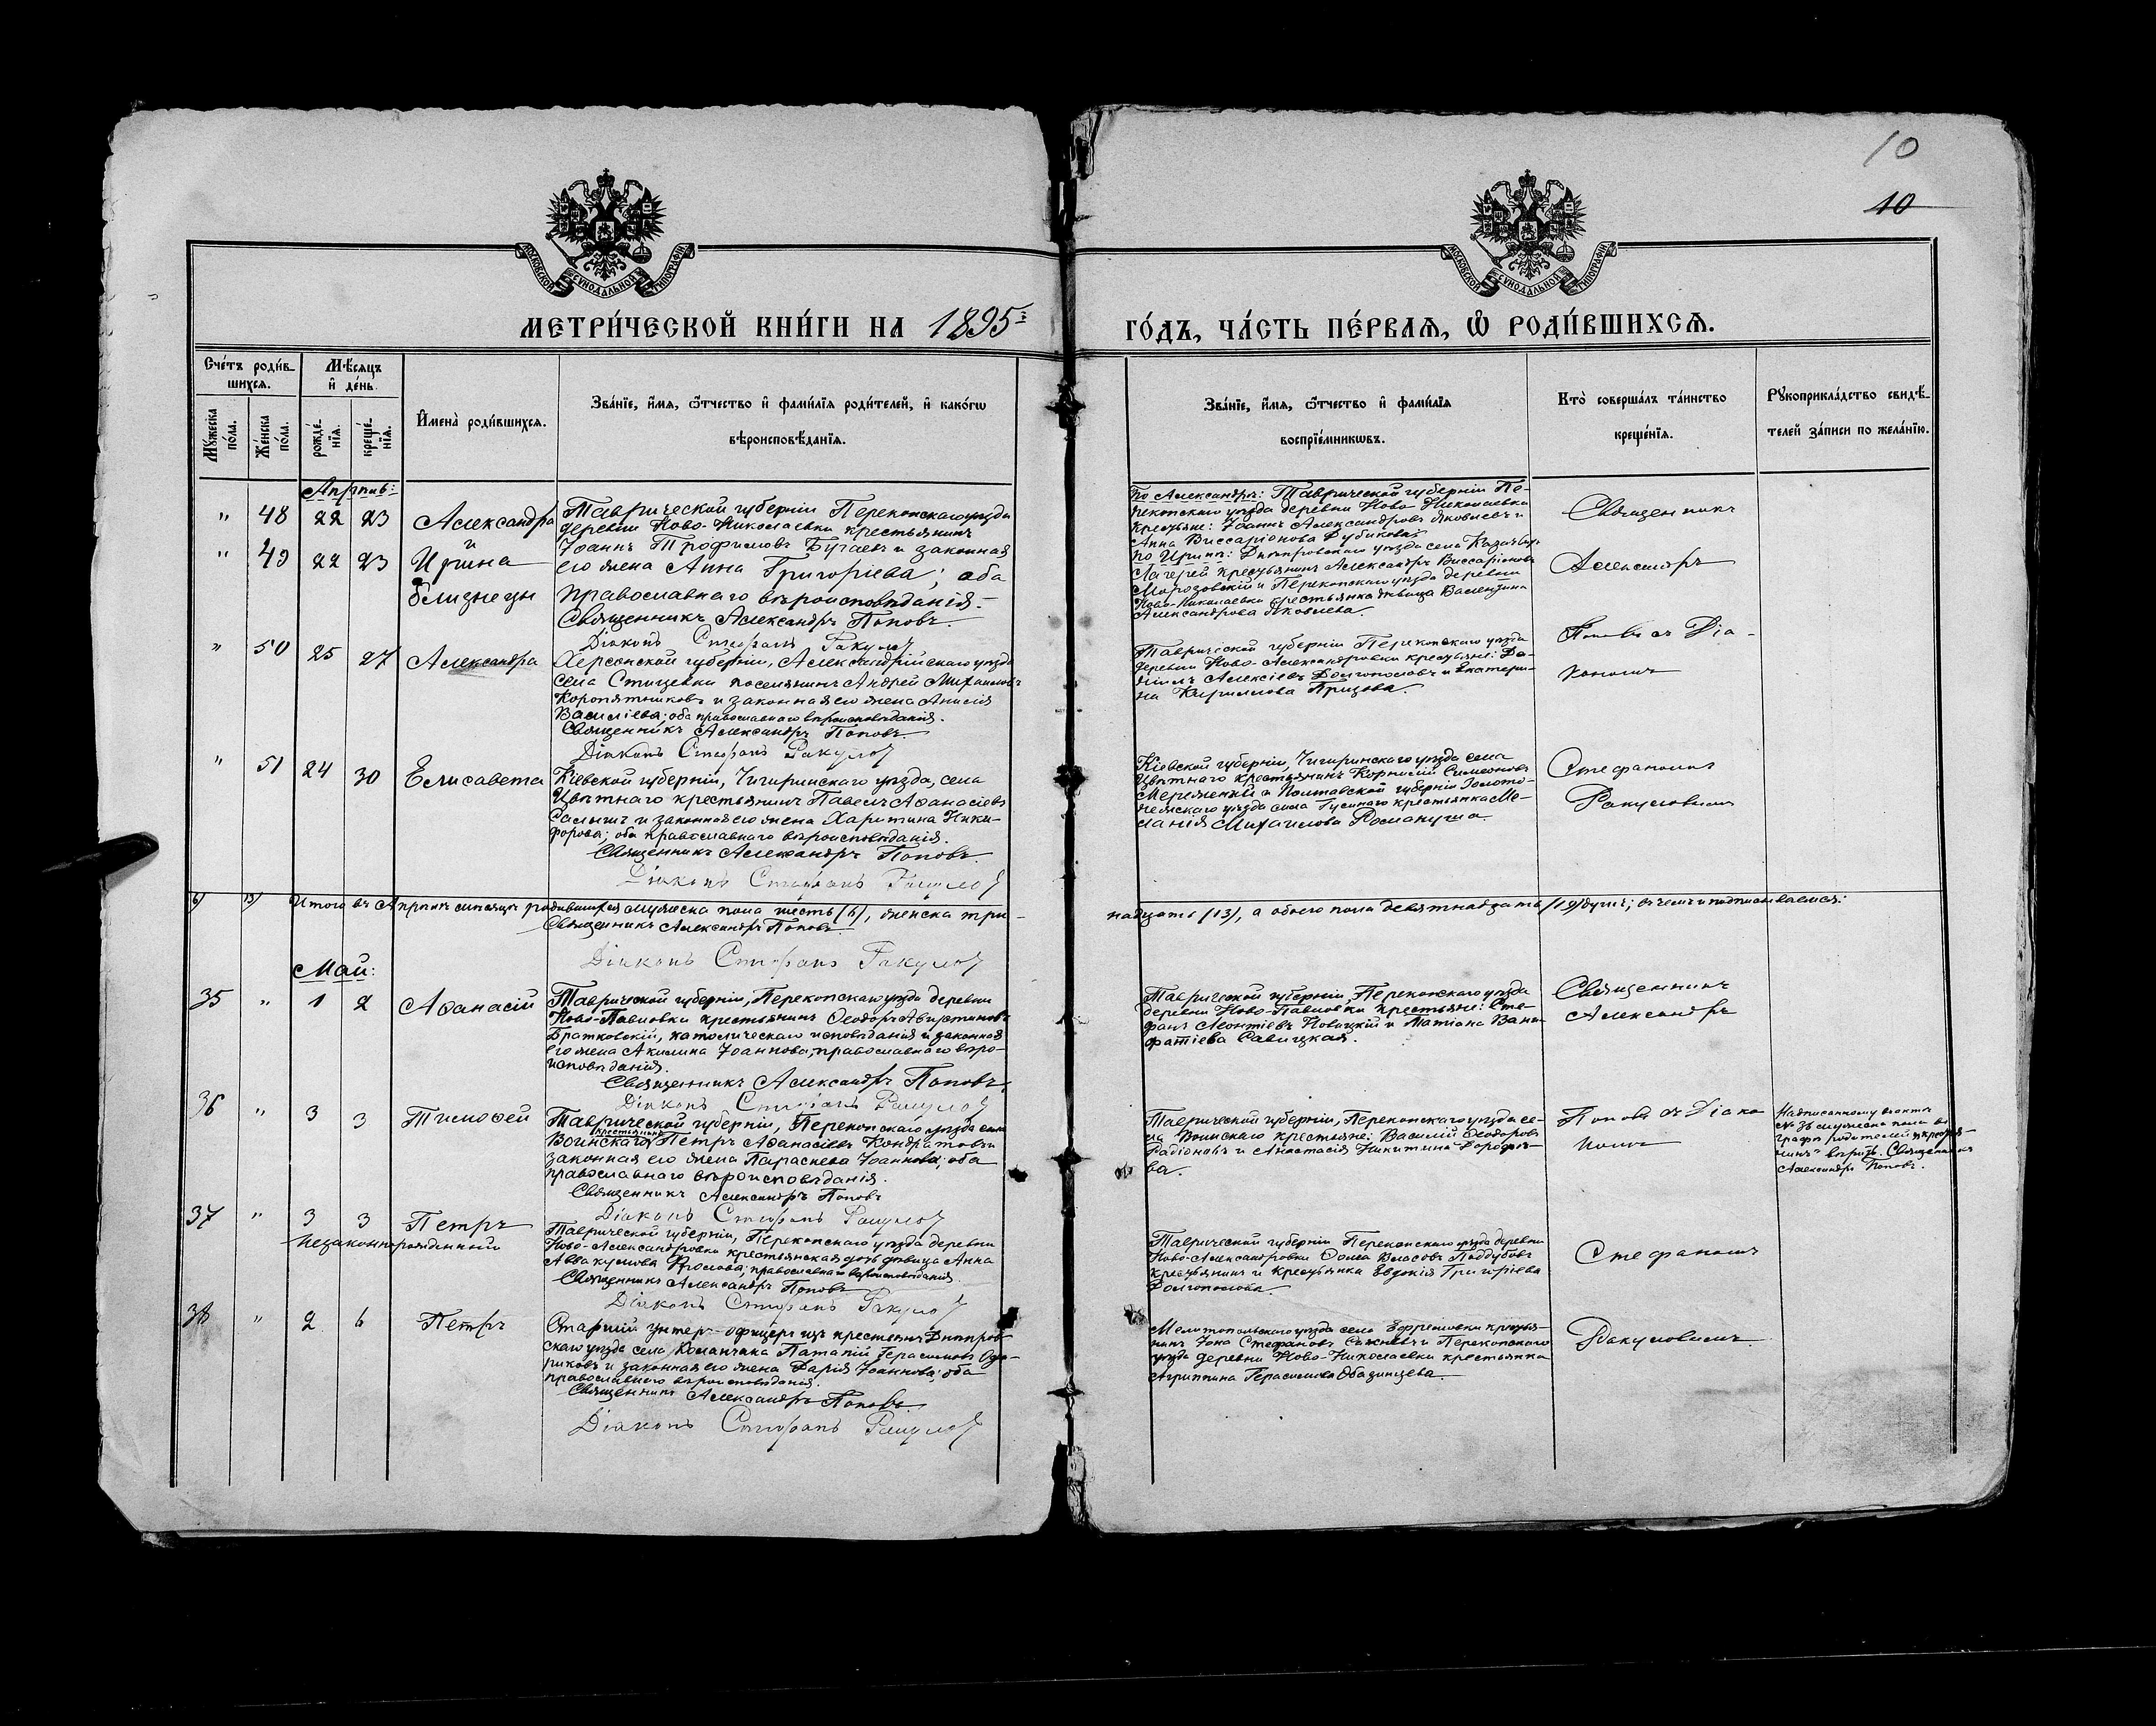 10
10
МОСКОВСКОЙ СѴНОДАЛЬНОЙ ТИПОГРАФІИ
МОСКОВСКОЙ СѴНОДАЛЬНОЙ ТИПОГРАФІИ
МЕТРИ́ЧЕСКОЙ КНИ́ГИ НА 1895
ГО́ДЪ, ЧА́СТЬ ПЕ́РВАЯ, Ѽ РОДИ́ВШИХСЯ.
Сче́тъ роди́в-
шихся.
Мѣ́сяцъ
и҆ де́нь.
Мꙋ́жеска по́ла.
Же́нска по́ла.
рожде́нїя.
креще́нїя.
И҆мена̀ роди́вшихся.
Зва́нїе, и҆́мя, ѻ҆́тчество и҆ фами́лїя роди́телей, и҆ како́гѡ
вѣроисповѣ́данїя.
Зва́нїе, и҆́мя, ѻ҆́тчество и҆ фами́лїя
воспрїе́мникѡвъ.
Кто̀ соверша́лъ та́инство
креще́нїя.
Рꙋкоприкла́дство свидѣ́-
телей за́писи по жела́нїю.
Апрѣль:
" 48 22 23 Александра
и
" 49 22 23 Ирина
близнецы
Таврической губерніи Перекопскаго уѣзда
деревни Ново-Николаевки крестьянинъ
Іоаннъ Трофимовъ Бугаевъ и законная
его жена Анна Григоріева; оба
православнаго вѣроисповѣданія.
Священникъ Александръ Поповъ.
Діаконъ Стефанъ
По Александрѣ: Таврической губерніи Пе-
рекопскаго уѣзда деревни Ново-Николаевки
крестьяне: Іоаннъ Александровъ Яковлевъ и
Анна Виссаріонова Дубикова
по Иринѣ: Днѣпровскаго уѣзда села
Лагерей крестьянинъ Александръ Виссаріоновъ
Морозовскій и Перекопскаго уѣзда деревни
Ново-Николаевки крестьянка дѣвица Валентина
Александрова Яковлева
Священникъ
Александръ
" 50 25 27 Александра
Херсонской губерніи, Александрійскаго уѣзда
села поселянинъ Андрей Михаиловъ
Коропятниковъ и законная его жена Анисія
Василіева; оба православнаго вѣроисповѣданія.
Священникъ Александръ Поповъ.
Діаконъ Стефанъ
Таврической губерніи Перекопскаго уѣзда
деревни Ново-Александровки крестьяне: Да-
ніилъ Алексіевъ Долгополовъ и Екатери-
на Кириллова
Поповъ съ Діа-
кономъ
" 51 24 30 Елисавета
Кіевской губерніи, Чигиринскаго уѣзда, села
Цвѣтнаго крестьянинъ Павелъ Аѳанасіевъ
и законная его жена Харитина Ники-
форова; оба православнаго вѣроисповѣданія.
Священникъ Александръ Поповъ
Діаконъ Стефанъ
Кіевской губерніи, Чигиринскаго уѣзда села
Цвѣтнаго крестьянинъ Корнилій Симеоновъ
и Полтавской губерніи Золото-
ношскаго уѣзда села крестьянка Ме-
ланія Михаилова
Стефаномъ
Ракуловымъ
6) 13) Итого въ Апрѣлѣ мѣсяцѣ родившихся мужеска пола шесть (6), женска три-
надцать (13), а обоего пола девятнадцать (19) душъ; въ чемъ и подписываемся:
Священникъ Александръ Поповъ.
Діаконъ Стефанъ
Май:
35 " 1 2 Аѳанасій
Таврической губерніи, Перекопскаго уѣзда деревни
Ново-Павловки крестьянинъ Ѳеодоръ Августиновъ
Братковскій, католическаго исповѣданія и законная
его жена Акилина Іоаннова, православнаго вѣро-
исповѣданія.
Священникъ Александръ Поповъ
Діаконъ Стефанъ
Таврической губерніи, Перекопскаго уѣзда
деревни Ново-Павловки крестьяне: Сте-
фанъ Леонтіевъ Новицкій и Татіана Вони-
фатіева Савицкая.
Священникъ
Александръ
36 " 3 3 Тимоѳей
Таврической губерніи, Перекопскаго уѣзда села
крестьянинъ
Воинскаго Петръ Аѳанасіевъ Кондратовъ и
законная его жена Параскева Іоаннова; оба
православнаго вѣроисповѣданія.
Священникъ Александръ Поповъ
Діаконъ Стефанъ
Таврической губерніи, Перекопскаго уѣзда се-
ла Воинскаго крестьяне: Василій Ѳеодоровъ
Радіоновъ и Анастасія Никитина
ва.
Поповъ съ Діако
номъ
Надписанному въ актѣ
№ 36 мужеска пола въ
графѣ родителей "крестья-
нинъ" вѣрить. Священникъ
Александръ Поповъ.
37 " 3 3 Петръ
незаконнорожденный
Таврической губерніи, Перекопскаго уѣзда деревни
Ново-Александровки крестьянская дочь дѣвица Анна
Аввакумова Фролова; православнаго вѣроисповѣданія.
Священникъ Александръ Поповъ
Діаконъ Стефанъ
Таврической губерніи Перекопскаго уѣзда деревни
Ново-Александровки Ѳома Власовъ Поддубовъ
крестьянинъ и крестьянка Евдокія Григоріева
Долгополова
Стефаномъ
38 " 2 6 Петръ
Старшій унтеръ-офицеръ изъ крестьянъ Днѣпров-
скаго уѣзда села Каланчака Патапій Герасимовъ
и законная его жена Дарія Іоаннова; оба
православнаго вѣроисповѣданія.
Священникъ Александръ Поповъ
Діаконъ Стефанъ
Мелитопольскаго уѣзда села Ефремовки крестья-
нинъ Іона Стефановъ и Перекопскаго
уѣзда деревни Ново-Николаевки крестьянка
Агриппина Герасимова
Ракуловымъ